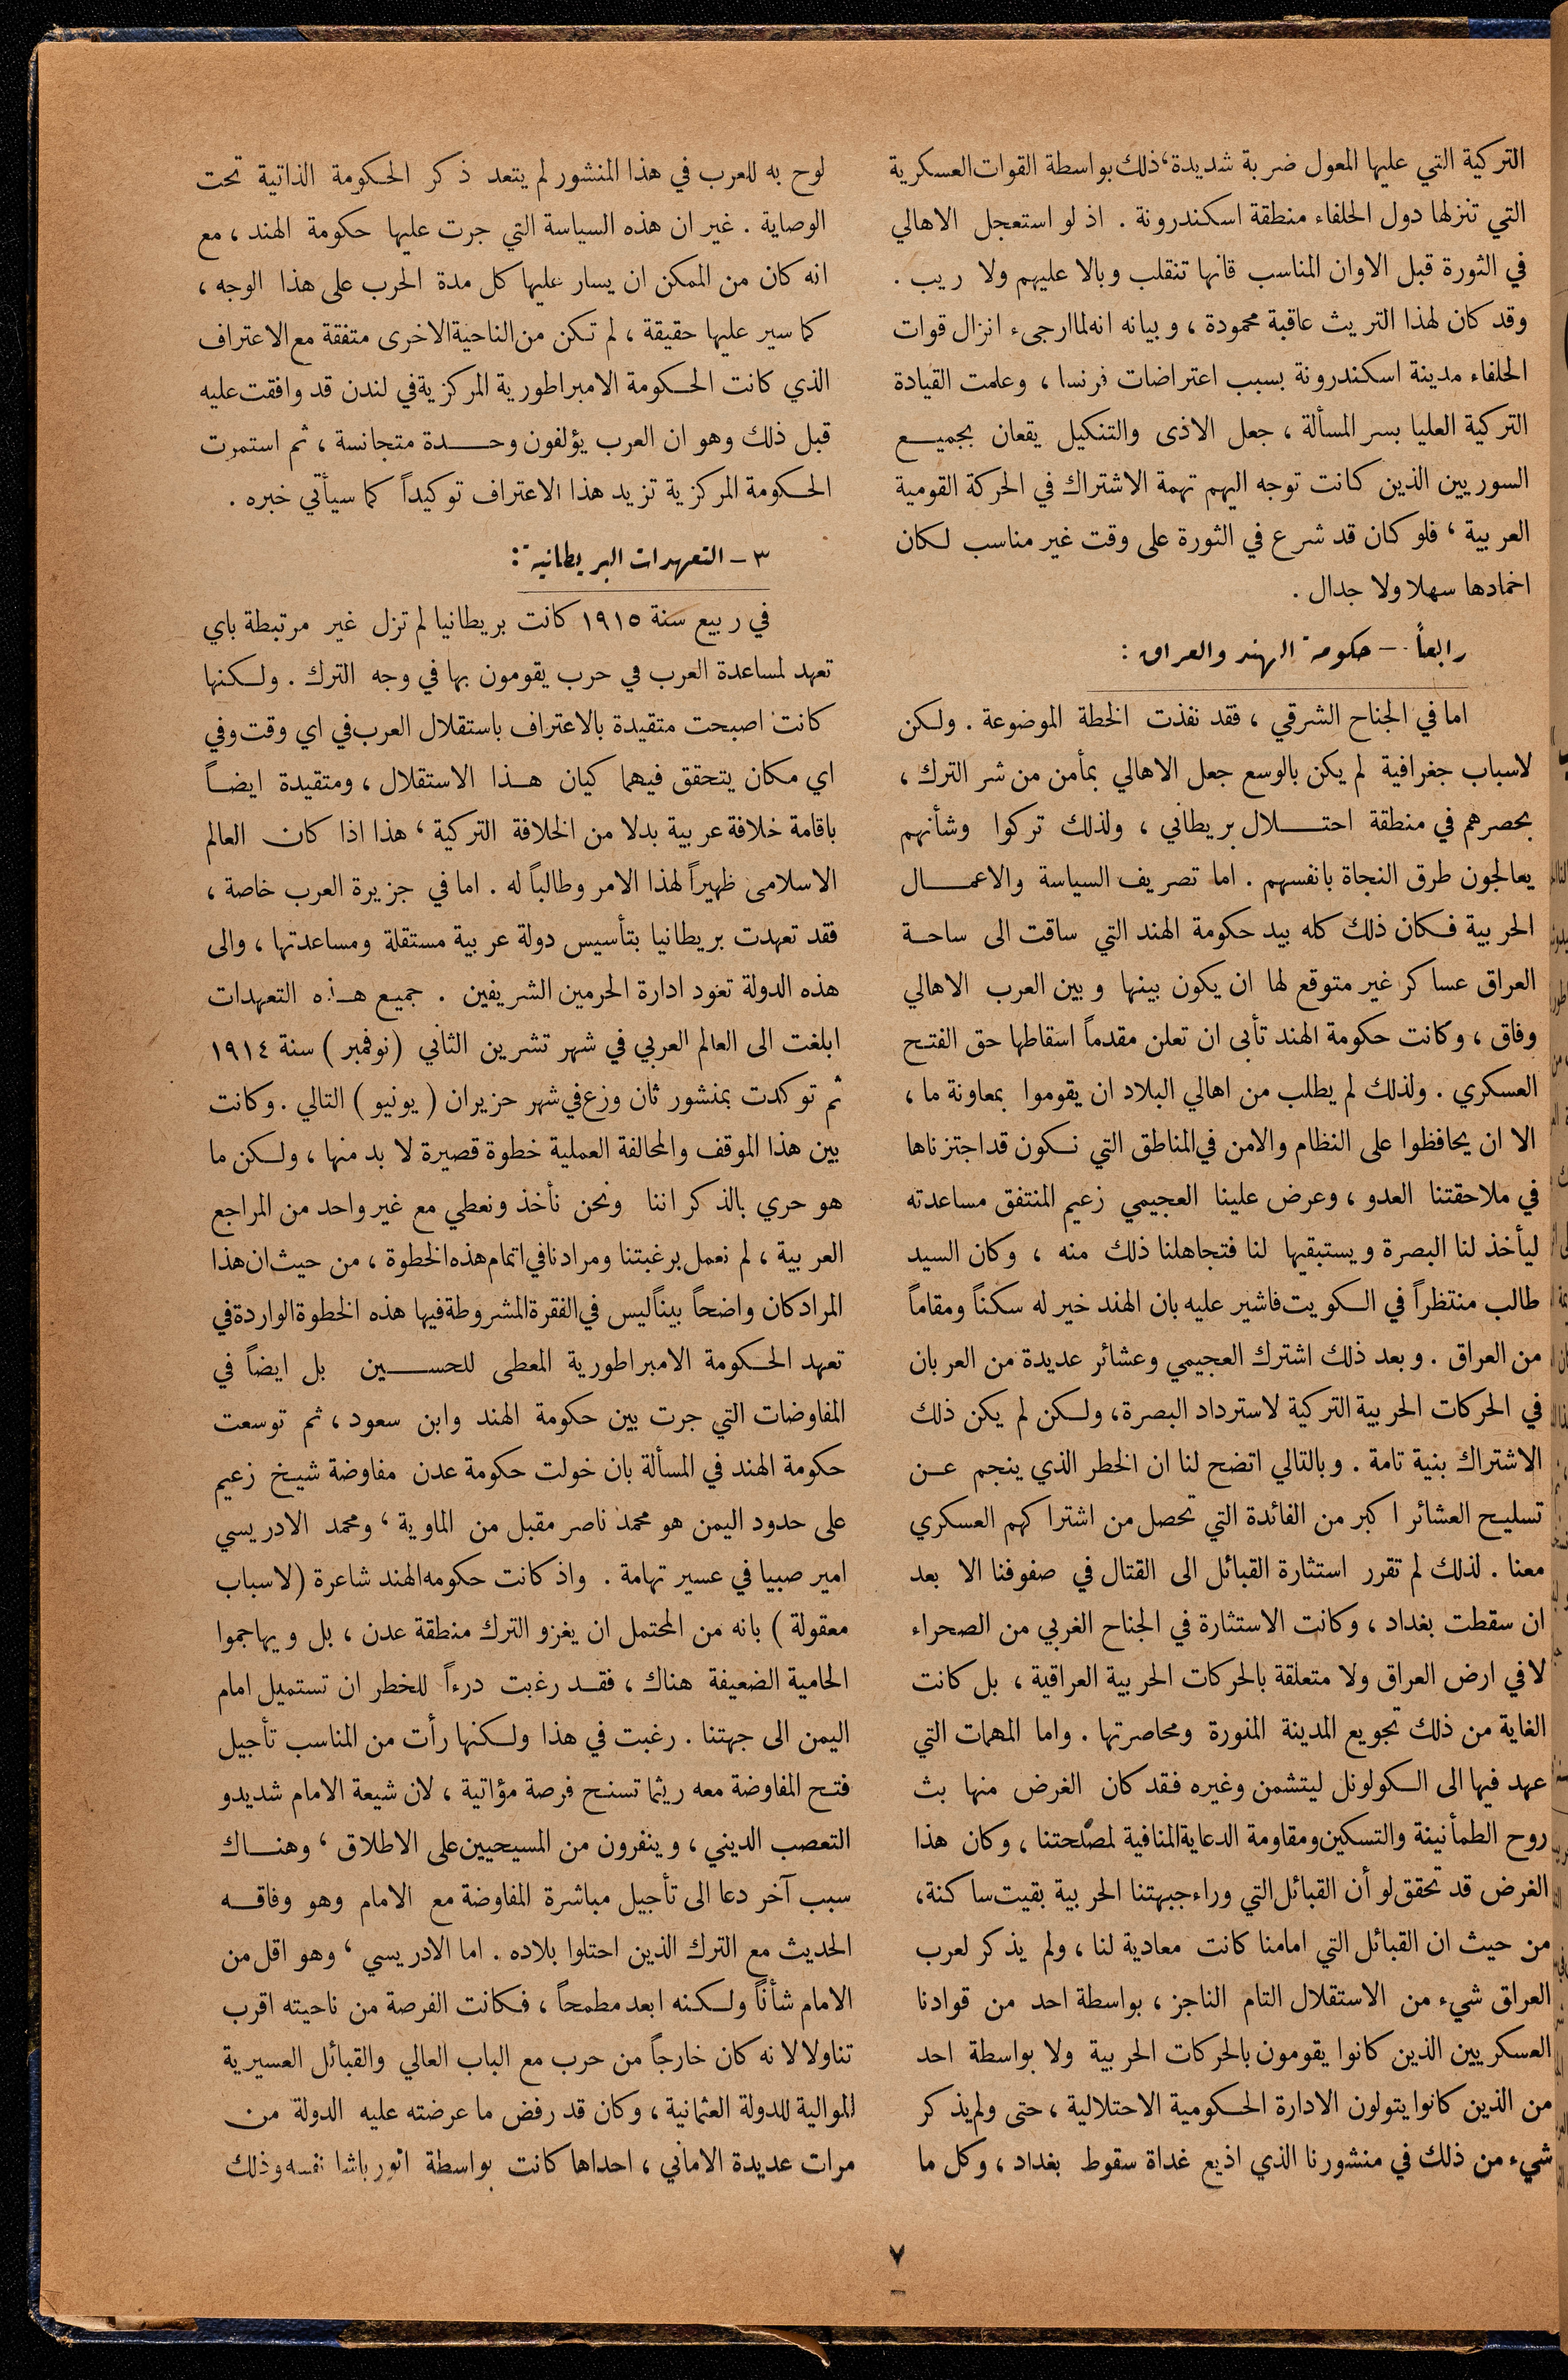 التركية التي عليها المعول ضربة شديدة، ذلك بواسطة القوات العسكرية
التي تنزلها دول الحلفاء منطقة اسكندرونة . اذ لو استعجل الاهالي
في الثورة قبل الاوان المناسب فانها تنقلب وبالا عليهم ولا ريب .
وقد كان لهذا التريث عاقبة محمودة ، وبيانه انه لما ارجىء انزال قوات
الحلفاء مدينة اسكندرونة بسبب اعتراضات فرنسا ، وعلمت القيادة
التركية العليا بسر المسألة ، جعل الاذى والتنكيل يقعان بجميع
السوريين الذين كانت توجه اليهم تهمة الاشتراك في الحركة القومية
العربية ، فلو كان قد شرع في الثورة على وقت غير مناسب لكان
اخمادها سهلا ولا جدال .
رابعاً - حكومة الهند والعراق :
اما في الجناح الشرقي ، فقد نفذت الخطة الموضوعة . ولكن
لاسباب جغرافية لم يكن بالوسع جعل الاهالي بمأمن من شر الترك ،
بحصرهم في منطقة احتلال بريطاني ، ولذلك تركوا وشأنهم
يعالجون طرق النجاة بانفسهم . اما تصريف السياسة والاعمال
الحربية فكان ذلك كله بيد حكومة الهند التي ساقت الى ساحة
العراق عساكر غير متوقع لها ان يكون بينها وبين العرب الاهالي
وفاق ، وكانت حكومة الهند تأبى ان تعلن مقدماً اسقاطها حق الفتح
العسكري . ولذلك لم يطلب من اهالي البلاد ان يقوموا بمعاونة ما ،
الا ان يحافظوا على النظام والامن في المناطق التي نكون قد اجتزناها
في ملاحقتنا العدو ، وعرض علينا العجيمي زعيم المنتفق مساعدته
ليأخذ لنا البصرة ويستبقيها لنا فتجاهلنا ذلك منه ، وكان السيد
طالب منتظراً في الكويت فاشير عليه بان الهند خير له سكناً ومقاماً
من العراق . وبعد ذلك اشترك العجيمي وعشائر عديدة من العربان
في الحركات الحربية التركية لاسترداد البصرة، ولكن لم يكن ذلك
الاشتراك بنية تامة . وبالتالي اتضح لنا ان الخطر الذي ينجم عن
تسليح العشائر اكبر من الفائدة التي تحصل من اشتراكهم العسكري
معنا . لذلك لم تقرر استثارة القبائل الى القتال في صفوفنا الا بعد
ان سقطت بغداد ، وكانت الاستثارة في الجناح الغربي من الصحراء
لا في ارض العراق ولا متعلقة بالحركات الحربية العراقية ، بل كانت
الغاية من ذلك تجويع المدينة المنورة ومحاصرتها . واما المهمات التي
عهد فيها الى الكولونل ليتشمن وغيره فقد كان الغرض منها بث
روح الطمأنينة والتسكين ومقاومة الدعاية المنافية لمصلحتنا ، وكان هذا
الغرض قد تحقق لو أن القبائل التي وراء جبهتنا الحربية بقيت ساكنة،
من حيث ان القبائل التي امامنا كانت معادية لنا ، ولم يذكر لعرب
العراق شيء من الاستقلال التام الناجز ، بواسطة احد من قوادنا
العسكريين الذين كانوا يقومون بالحركات الحربية ولا بواسطة احد
من الذين كانوا يتولون الادارة الحكومية الاحتلالية ، حتى ولم يذكر
شيء من ذلك في منشورنا الذي اذيع غداة سقوط بغداد ، وكل ما
لوح به للعرب في هذا المنشور لم يتعد ذكر الحكومة الذاتية تحت
الوصاية . غير ان هذه السياسة التي جرت عليها حكومة الهند ، مع
انه كان من الممكن ان يسار عليها كل مدة الحرب على هذا الوجه ،
كما سير عليها حقيقة ، لم تكن من الناحية الاخرى متفقة مع الاعتراف
الذي كانت الحكومة الامبراطورية المركزية في لندن قد وافقت عليه
قبل ذلك وهو ان العرب يؤلفون وحدة متجانسة ، ثم استمرت
الحكومة المركزية تزيد هذا الاعتراف توكيداً كما سيأتي خبره .
٣ - التعهدات البريطانية :
في ربيع سنة ١٩١٥ كانت بريطانيا لم تزل غير مرتبطة باي
تعهد لمساعدة العرب في حرب يقومون بها في وجه الترك . ولكنها
كانت اصبحت متقيدة بالاعتراف باستقلال العرب في اي وقت وفي
اي مكان يتحقق فيهما كيان هذا الاستقلال ، ومتقيدة ايضاً
باقامة خلافة عربية بدلا من الخلافة التركية ، هذا اذا كان العالم
الاسلامي ظهيراً لهذا الامر وطالباً له . اما في جزيرة العرب خاصة ،
فقد تعهدت بريطانيا بتأسيس دولة عربية مستقلة ومساعدتها ، والى
هذه الدولة تعود ادارة الحرمين الشريفين . جميع هذه التعهدات
ابلغت الى العالم العربي في شهر تشرين الثاني (نوفمبر) سنة ١٩١٤
ثم توكدت بمنشور ثان وزع في شهر حزيران ( يونيو ) التالي . وكانت
بين هذا الموقف والمحالفة العملية خطوة قصيرة لا بد منها ، ولكن ما
هو حري بالذكر اننا ونحن نأخذ ونعطي مع غير واحد من المراجع
العربية ، لم نعمل برغبتنا ومرادنا في اتمام هذه الخطوة ، من حيث ان هذا
المراد كان واضحاً بيناً ليس في الفقرة المشروطة فيها هذه الخطوة الواردة في
تعهد الحكومة الامبراطورية المعطى للحسين بل ايضاً في
المفاوضات التي جرت بين حكومة الهند وابن سعود ، ثم توسعت
حكومة الهند في المسألة بان خولت حكومة عدن مفاوضة شيخ زعيم
على حدود اليمن هو محمد ناصر مقبل من الماوية ، ومحمد الادريسي
امير صبيا في عسير تهامة . واذ كانت حكومه الهند شاعرة (لاسباب
معقولة ) بانه من المحتمل ان يغزو الترك منطقة عدن ، بل ويهاجموا
الحامية الضعيفة هناك ، فقد رغبت درءاً للخطر ان تستميل امام
اليمن الى جهتنا . رغبت في هذا ولكنها رأت من المناسب تأجيل
فتح المفاوضة معه ريثما تسنح فرصة مؤاتية ، لان شيعة الامام شديدو
التعصب الديني ، وينفرون من المسيحيين على الاطلاق ، وهناك
سبب آخر دعا الى تأجيل مباشرة المفاوضة مع الامام وهو وفاقه
الحديث مع الترك الذين احتلوا بلاده . اما الادريسي ، وهو اقل من
الامام شأناً ولكنه ابعد مطمحاً ، فكانت الفرصة من ناحيته اقرب
تناولا لانه كان خارجاً من حرب مع الباب العالي والقبائل العسيرية
الموالية للدولة العثمانية ، وكان قد رفض ما عرضته عليه الدولة من
مرات عديدة الاماني ، احداها كانت بواسطة انور باشا نفسه وذلك
٧